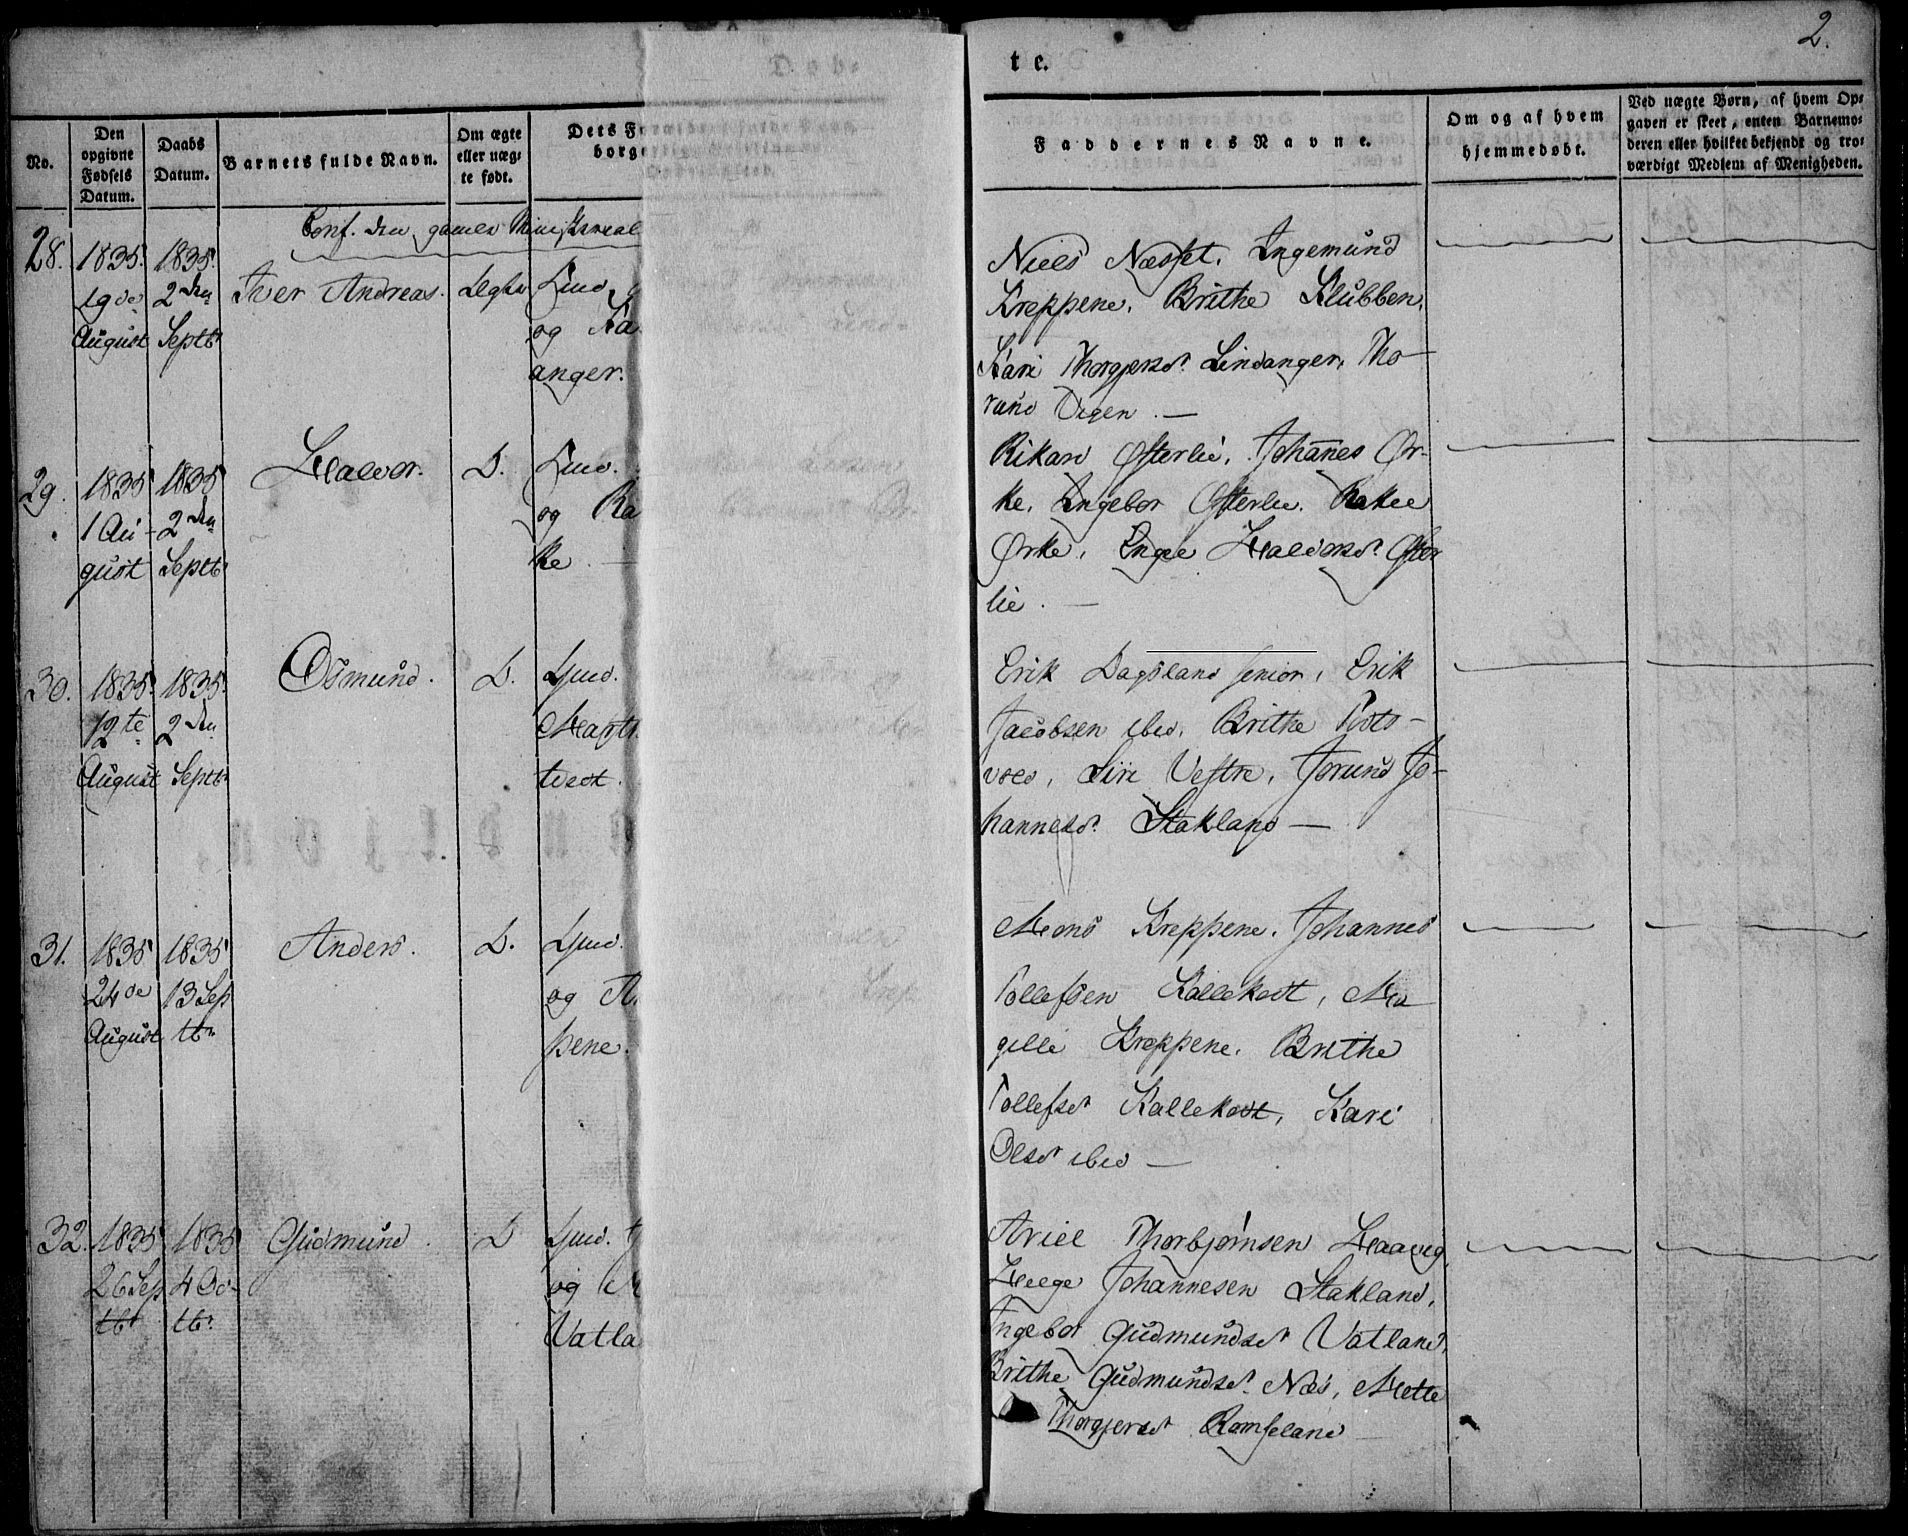 2.
te.
No.
Den opgivne Fødsels Datum.
Daabs Datum.
Barnets fulde Navn.
Om ægte eller uæg- te født.
Dets F
borge
Faddernes Navne.
Om og af hvem hjemmedøbt.
Ved uægte Børn, af hvem Op- gaven er skeet, enten Barnemo- deren eller hvilket bekjendt og tro- værdigt Medlem af Menigheden.
Conf. den gamle
28. 1835. 19de August
1835. 2den Septbr
Iver Andreas.
Ægte
og Ka
anger.
Niels Næsset, Ingemund
Kreppene, Brithe Klubben,
Kari Thorgersdr Lindanger, Tho-
rund Vigen. —
29. 1835 1 Au- gust
1835 2den Septbr
Halvor.
D.
og Ra
ke. —
Rikard Østerlie, Johanes Ør-
ke, Ingebor Østerlie. Rakel
Ørke, Inger Halvorsdr Øster
lie. —
30. 1835. 12te August
1835. 2den Septbr
Osmund.
D.
Gmd.
tvedt.
Erik Dagsland senior, Erik
Jacobsen ibid, Brithe
vold, Siri Vestre, Jorund Jo-
hannesdr. Stakland —
31. 1835 24de August
1835 13 Sep tbr
Anders.
D.
Gmd.
og A
pene.
Mons Kreppene, Johannes
Tollefsen Kallekodt, Ma
gelli Kreppene. Brithe
Tollefsdr Kallekodt, Kari
Olsdr ibid —
32. 1835 26 Sep tbr
1835 4 Oc- tbr
Gudmund.
D
Gmd.
og M
Vatla
Ariel Thorbjørnsen Haavig,
Helge Johannesen Stakland,
Ingebor Gudmundsdr Vatland,
Brithe Gudmundsdr. Næs, Mette
Thorgersdr Ramseland —